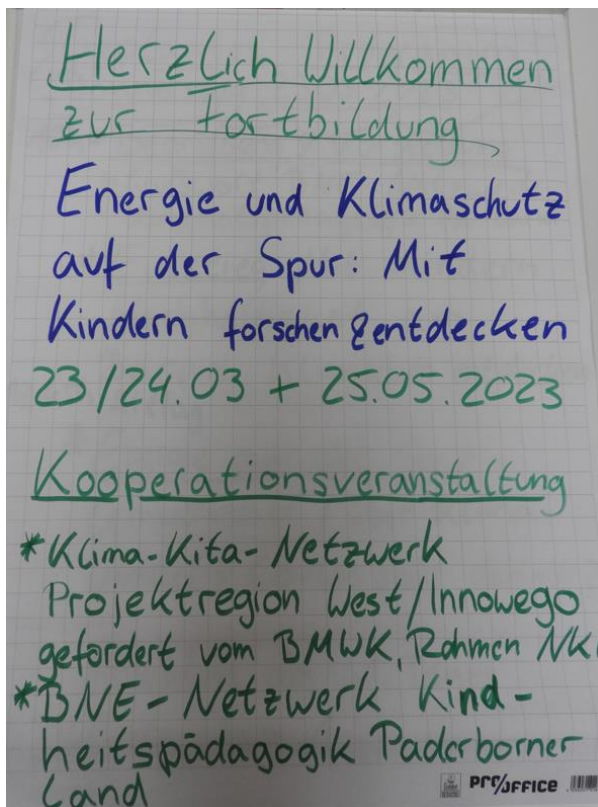 Herzlich Willkommen
zur Fortbildung
Energie und Klimaschutz
auf der Spur: Mit
Kindern forschen & entdecken
23/24.03 + 25.05.2023
Kooperationsveranstaltung
*Klima-Kita-Netzwerk
Projektregion West/Innowego
gefördert vom BMWK, Rahmen NK
*BNE-Netzwerk Kind-
heitspädagogik Paderborner
Land
PRO/OFFICE